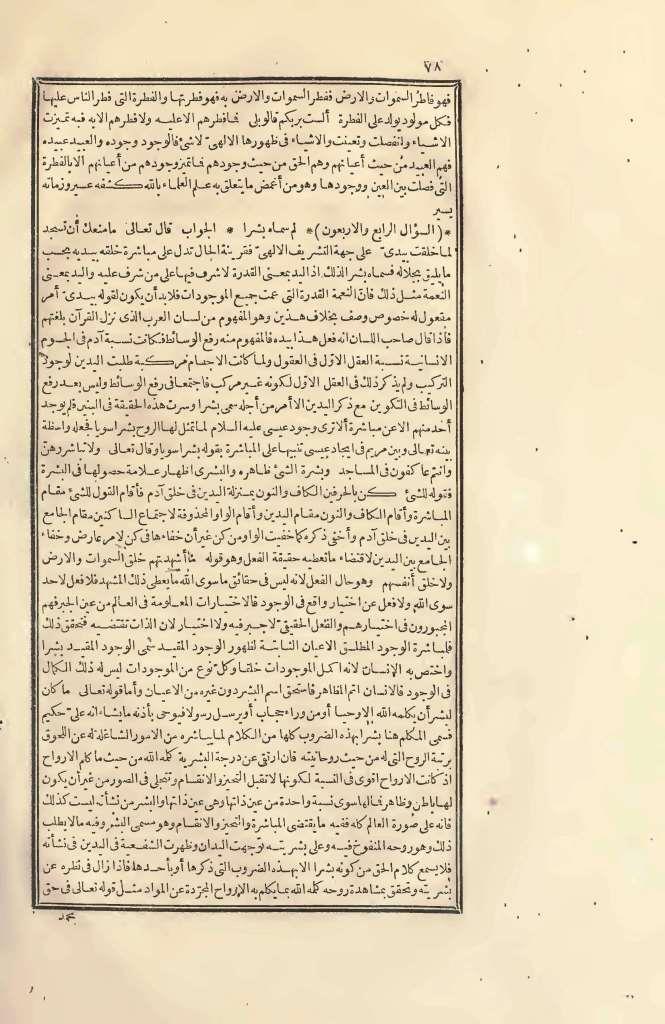 ٧٨
فهو فاطر السموات والارض ففطر السموات والارض به فهو فطرتها والفطرة التى فطر الناس عليها
فكل مولود يولد على الفطرة ألست بربكم قالوا بلى فما فطرهم الا عليه ولا فطرهم الا به فبه تميزت
الاشياء وانفصلت وتعينت والاشياء فى ظهورها الالهىّ لا شئ فالوجود وجوده والعبيد عبيده
فهم العبيد من حيث أعيانهم وهم الحق من حيث وجودهم فما تميز وجودهم من أعيانهم الا بالفطرة
التى فصلت بين العين ووجودها وهو من أغمض ما يتعلق به علم العلماء بالله كشفه عسير وزمانه
يسير
*(السؤال الرابع والاربعون)* لم سماه بشرا * الجواب قال تعالى ما منعك أن تسجد
لما خلقت بيدىّ على جهة التشريف الالهىّ فقرينة الحال تدل على مباشرة خلقه بيديه بحسب
ما يليق بجلاله فسماه بشرا لذلك اذ اليد بمعنى القدرة لا شرف فيها على من شرف عليه واليد بمعنى
النعمة مثل ذلك فانّ النعمة القدرة التى عمت جميع الموجودات فلا بد أن يكون لقوله بيدىّ أمر
معقول له خصوص وصف بخلاف هذين وهو المفهوم من لسان العرب الذى نزل القرآن بلغتهم
فاذا قال صاحب اللسان انه فعل هذا بيده فالمفهوم منه رفع الوسائط فكانت نسبة آدم فى الجسوم
الانسانية نسبة العقل الاوّل فى العقول ولما كانت الاجسام مركبة طلبت اليدين لوجود
التركيب ولم يذكر ذلك فى العقل الاوّل لكونه غير مركب فاجتمعا فى رفع الوسائط وليس بعد رفع
الوسائط فى التكوين مع ذكر اليدين الا أمر من أجله سمى بشرا وسرت هذه الحقيقة فى البنين فلم يوجد
أحد منهم الا عن مباشرة ألا ترى وجود عيسى عليه السلام لما تمثل لها الروح بشرا سويا فجعله واسطة
بينه تعالى وبين مريم فى ايجاد عيسى تنبيها على المباشرة بقوله بشرا سويا وقال تعالى ولا تباشروهنّ
وانتم عاكفون فى المساجد وبشرة الشئ ظاهره والبشرى اظهار علامة حصولها فى البشرة
فقوله للشئ كن بالحرفين الكاف والنون بمنزلة اليدين فى خلق آدم فأقام القول للشئ مقام
المباشرة وأقام الكاف والنون مقام اليدين وأقام الواو المحذوفة لاجتماع الساكنين مقام الجامع
بين اليدين فى خلق آدم وأخفى ذكره كما خفيت الواو من كن غير أن خفاءها فى كن لامر عارض وخفاء
الجامع بين اليدين لاقتضاء ما تعطيه حقيقة الفعل وهو قوله ما أشهدتهم خلق السموات والارض
ولا خلق أنفسهم وهو حال الفعل لانه ليس فى حقائق ما سوى الله ما يعطى ذلك المشهد فلا فعل لاحد
سوى الله ولا فعل عن اختيار واقع فى الوجود فالاختيارات المعلومة فى العالم من عين الجبر فهم
المجبورون فى اختيارهم والفعل الحقيقىّ لا جبر فيه ولا اختيار لان الذات تقتضيه فتحقق ذلك
فلمباشرة الوجود المطلق الاعيان الثابتة لظهور الوجود المقيد سمى الوجود المقيد بشرا
واختص به الانسان لانه اكمل الموجودات خلقا وكل نوع من الموجودات ليس له ذلك الكمال
فى الوجود فالانسان اتم المظاهر فاستحق اسم البشر دون غيره من الاعيان وأما قوله تعالى ما كان
لبشر أن يكلمه الله الا وحيا أو من وراء حجاب أو يرسل رسولا فيوحى بأذنه ما يشاء انه علىّ حكيم
فسمى المكلم هنا بشرا بهذه الضروب كلها من الكلام لما يباشره من الامور الشاغلة له عن اللحوق
برتبة الروح التى له من حيث روحانيته فان ارتقى عن درجة البشرية كلمه الله من حيث ما كلم الارواح
اذ كانت الارواح اقوى فى النسبة لكونها لا تقبل التحيز والانقسام وتتجلى فى الصور من غير أن يكون
لها باطن وظاهر فما لها سوى نسبة واحدة من عين ذاتها وهى عين ذاتها والبشر من نشأته ليست كذلك
فانه على صورة العالم كله ففيه ما يقتضى المباشرة والتحيز والانقسام وهو مسمى البشر وفيه ما لا يطلب
ذلك وهو روحه المنفوخ فيه وعلى بشريته توجهت اليدان وظهرت الشفعية فى اليدين فى نشأته
فلا يسمع كلام الحق من كونه بشرا الا بهذه الضروب التى ذكرها أو بأحدها فاذا زال فى نظره عن
بشريته وتحقق بمشاهدة روحه كلمه الله بما يكلم به الارواح المجرّدة عن المواد مثل قوله تعالى فى حق
محمد